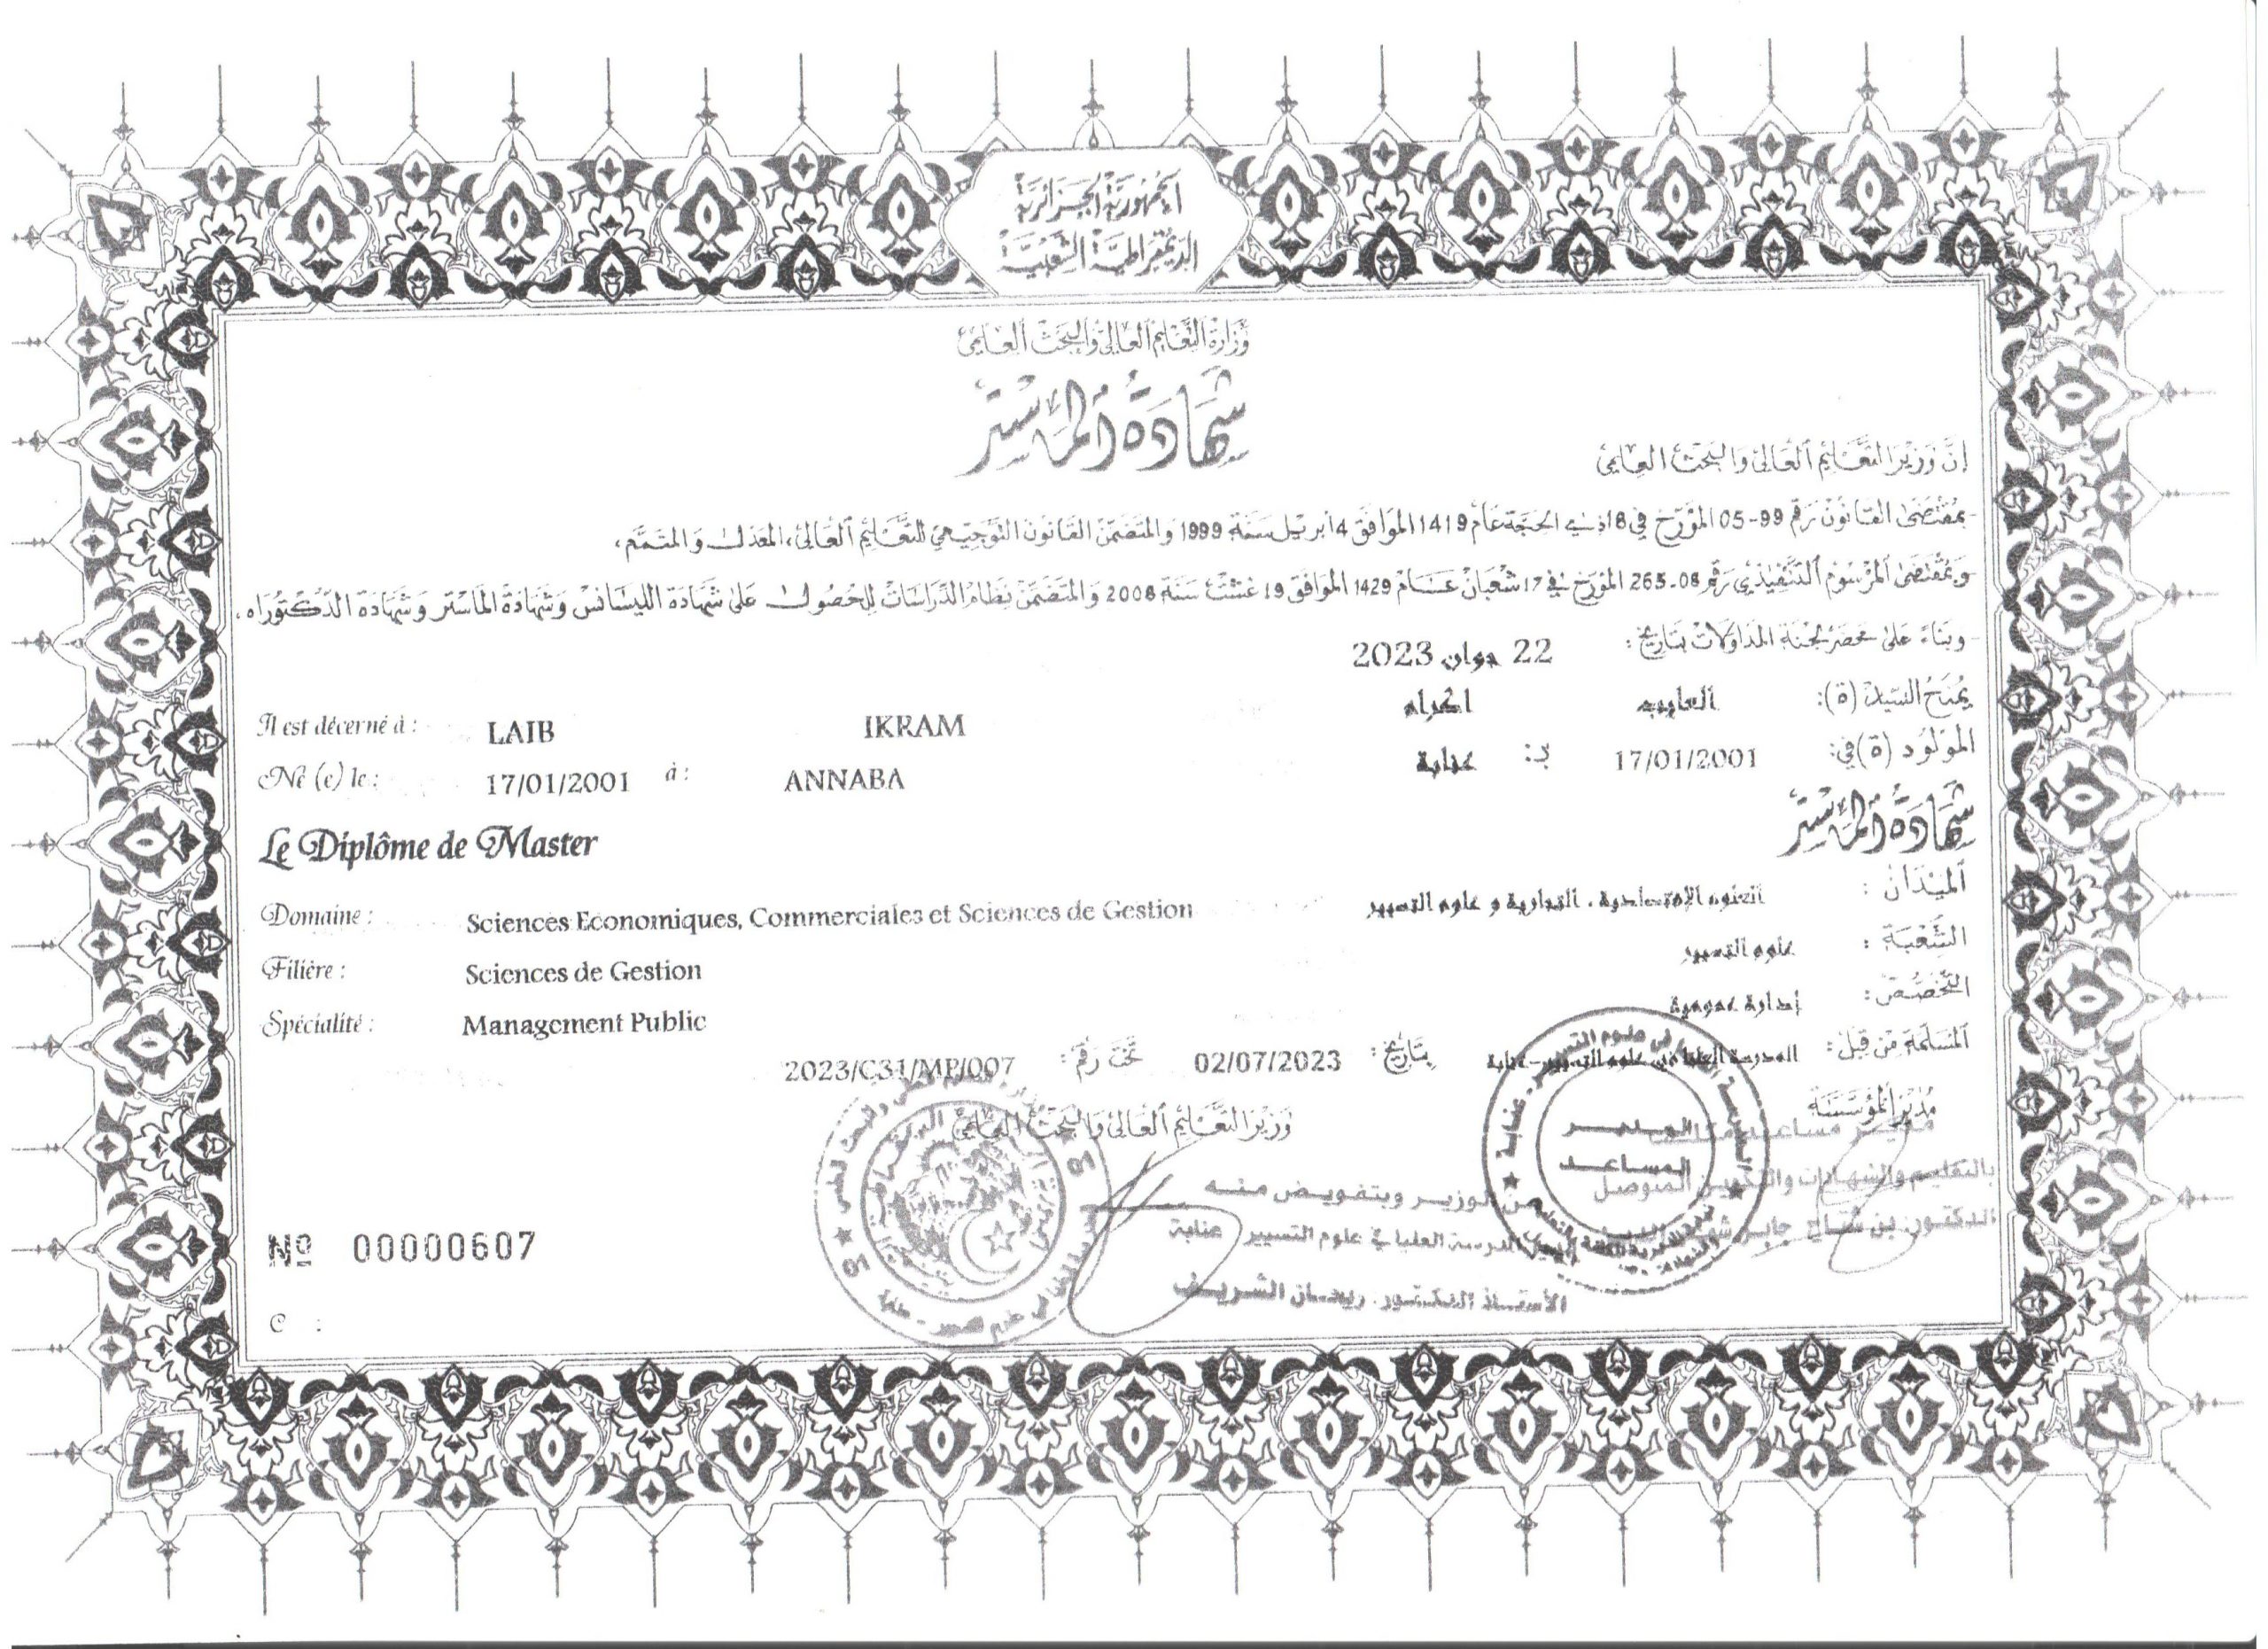 الجمهورية الجزائرية
الديمقراطية الشعبية
وزارة التعليم العالي والبحث العلمي
شهادة الماستر
إن وزير التعليم العالي والبحث العلمي
- بمقتضى القانون رقم 99-05 المؤرخ في 18 ذي الحجة عام 1419 الموافق 4 أبريل سنة 1999 والمتضمن القانون التوجيهي للتعليم العالي، المعدل والمتمم،
- وبمقتضى المرسوم التنفيذي رقم 08-265 المؤرخ في 17 شعبان عام 1429 الموافق 19 غشت سنة 2008 والمتضمن نظام الدراسات للحصول على شهادة الليسانس وشهادة الماستر وشهادة الدكتوراه،
- وبناء على محضر لجنة المداولات بتاريخ: 22 جوان 2023
يمنح السيد (ة): العايب اكرام
Il est décerné à : LAIB IKRAM
المولود (ة) في: 17/01/2001 بـ: عنابة
Né (e) le : 17/01/2001 à : ANNABA
شهادة الماستر
Le Diplôme de Master
الميدان : العلوم الإقتصادية ، التجارية و علوم التسيير
Domaine : Sciences Economiques, Commerciales et Sciences de Gestion
الشعبة : علوم التسيير
Filière : Sciences de Gestion
التخصص : إدارة عمومية
Spécialité : Management Public
المسلمة من قبل : المدرسة العليا في علوم التسيير-عنابة بتاريخ : 02/07/2023 تحت رقم : 2023/C31/MP/007
مدير المؤسسة
وزير التعليم العالي والبحث العلمي
المدير
المساعد
عن الوزير وبتفويض منه
المدرسة العليا في علوم التسيير عنابة
الأستاذ الدكتور. ريحان الشريف
Nº 00000607
C :